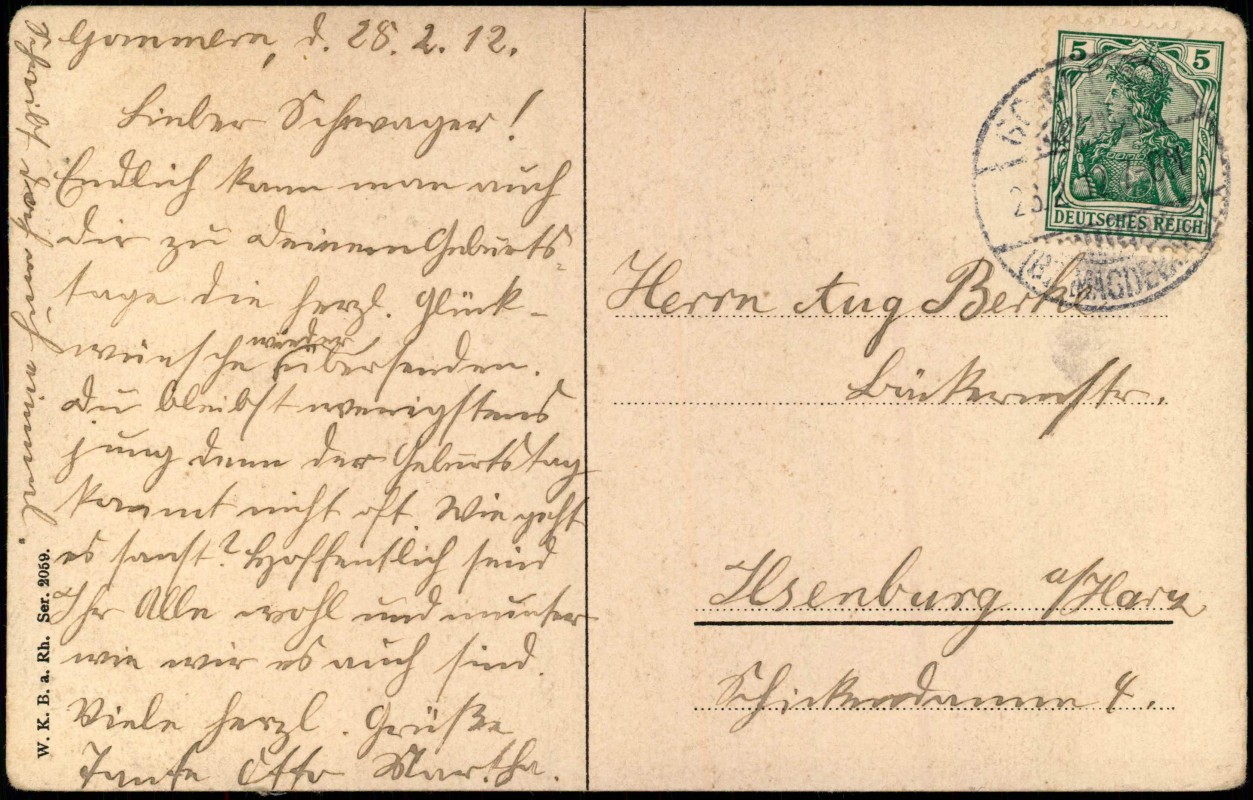 Gommern, d. 28. 2. 12.
Lieber Schwager!
Endlich kann man auch
dir zu deinem Geburts-
tage die herzl. Glück-
wünsche wieder übersenden.
Du bleibst wenigstens
jung denn der Geburtstag
kommt nicht oft. Wie geht
es sonst? Hoffentlich seid
Ihr Alle wohl und munter
wie wir es auch sind.
Viele herzl. Grüße
Tante Otto Martha.
Schreibt doch auch einmal.
W. K. B. a. Rh. Ser. 2059.
5 5
DEUTSCHES REICH
MAGDEB
Herrn Aug
Bäckermstr.
Ilsenburg a/Harz
4.